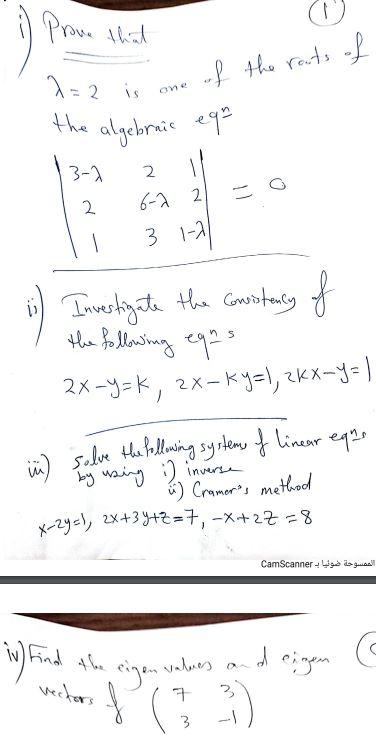 (1)
i) Prove that
λ = 2 is one of the roots of
the algebraic eqn
| 3-λ 2 1 |
| 2 6-λ 2 | = 0
| 1 3 1-λ |
ii) Investigate the consistency of
the following eqns
2x-y=k, 2x-ky=1, 2kx-y=1
iii) Solve the following system of linear eqns
by using i) inverse
ii) Cramer's method
x-2y=1, 2x+3y+z=7, -x+2z=8
الممسوحة ضوئيا بـ CamScanner
iv) Find the eigen values and eigen
vectors of ( 7 3
3 -1 )